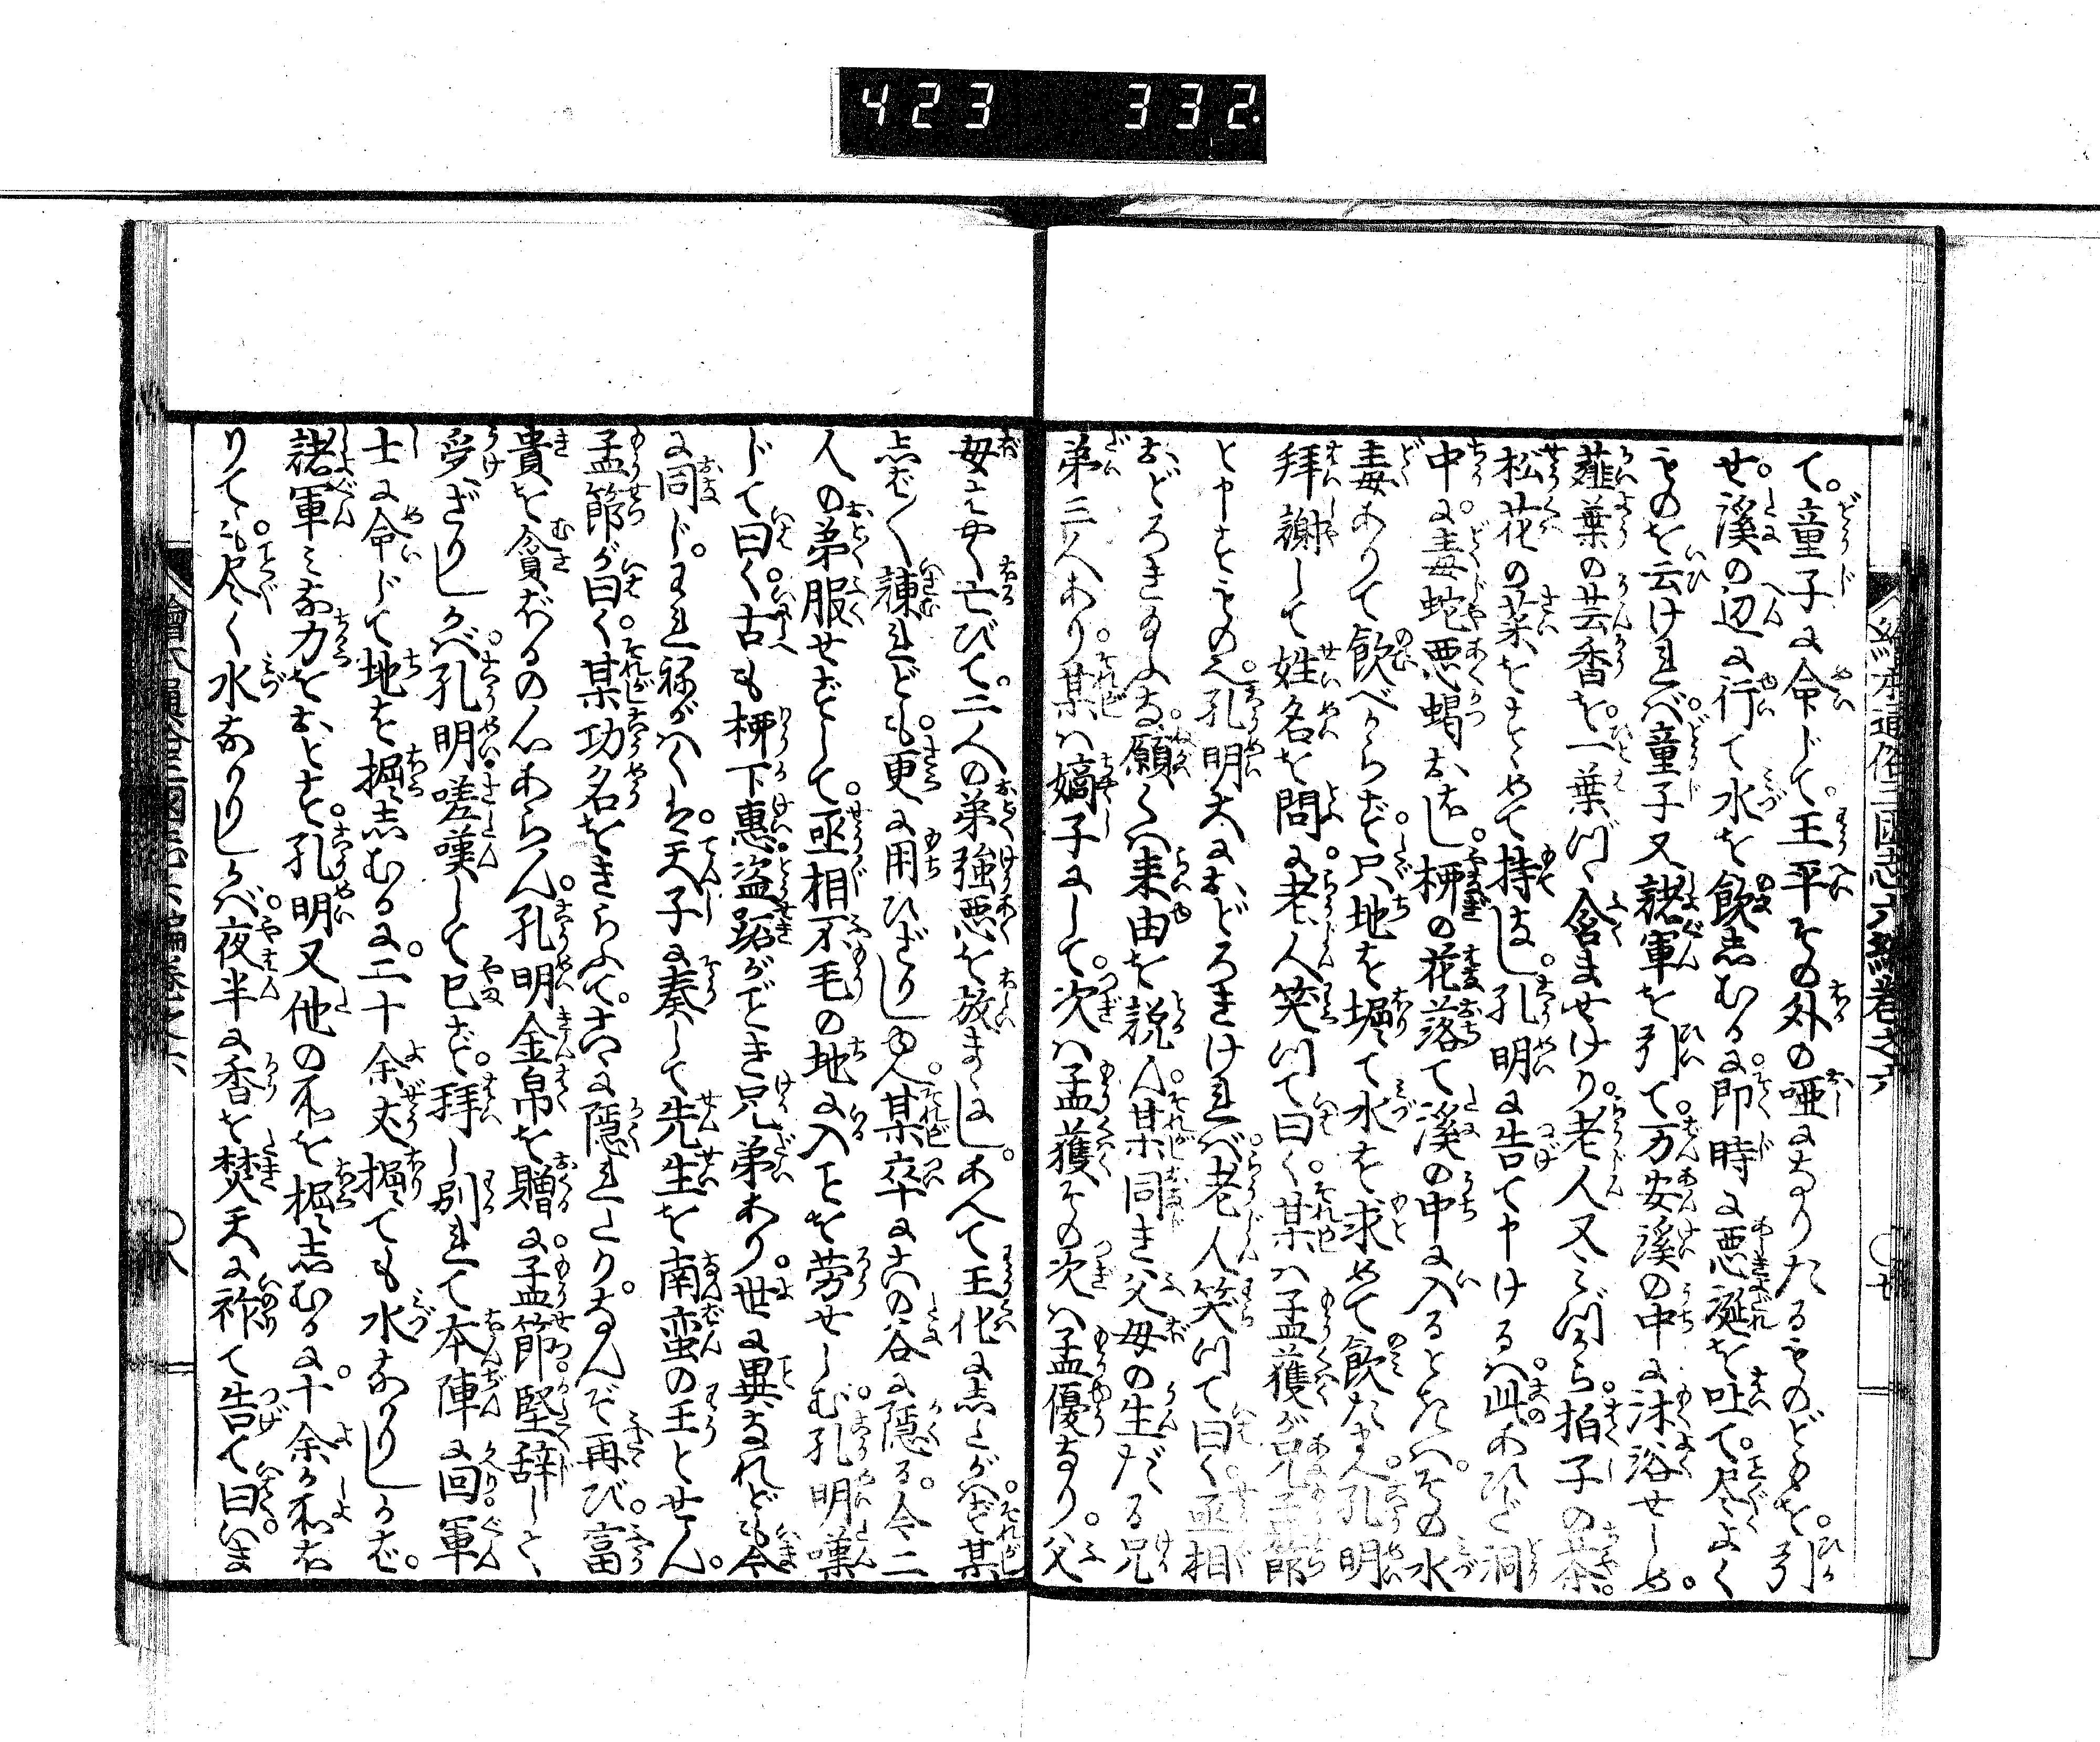 423 332
て。童子に命じて。王平その外の唖になりたるものどもを。引
せ。溪の辺に行て水を飲しむるに。即時に悪涎を吐て。尽よく
ものを云ければ。童子又諸軍を引て。万安溪の中に沐浴せしめ。
薤葉の芸香を。一葉づゝ含ませけり。老人又みづから。柏子の茶。
松花の菜をすゝめて持なし。孔明に告て申けるは。此あひだ洞
中に。毒蛇悪蝎おほし。柳の花落て溪の中に入るときは。その水
毒ありて飲べからず。只地を堀て水を求めて飲たまへ。孔明
拝謝して姓名を問に。老人笑つて曰く。某は孟獲が兄孟節
と申すものなり。孔明大におどろきければ。老人笑つて曰く。丞相
おどろき玉ふな。願くは来由を説ん。某同き父母の生だる兄
弟三人あり。某は嫡子にして。次は孟獲その次は孟優なり。父
母はやく亡びて。二人の弟強悪を放まゝにし。あへて王化にしたがはず。某
しばしば諫れども。更に用ひざりしゆへ。某卒にこの谷に隠る。今二
人の弟服せずして。丞相不毛の地に入ことを労せしむ。孔明嘆
じて曰く。古も柳下惠。盗跖がごとき兄弟あり。世に異なれども今
に同じ。われねがはくは。天子に奏して先生を南蛮の王とせん。
孟節が曰く。某功名をきらふて。こゝに隠れたり。なんぞ再び。富
貴を貪ぼるの心あらん。孔明金帛を贈に。孟節。堅辞して。
受ざりしかば。孔明。嗟嘆して已ず。拝し別れて本陣に回。軍
士に命じて地を掘しむるに。二十余丈掘ても水なかりしかば。
諸軍みな力をおとす。孔明又他の所を掘しむるに。十余か所ほ
りても。尽く水なかりしかば。夜半に香を焚天に祚て告て曰。いま